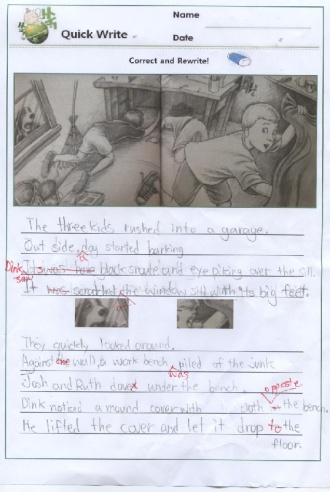 Quick Write
Name
Date
Correct and Rewrite!
The three kids rushed into a garage.
Out side, day started barking
Dink saw
It was black snoute and eye piking over the sill.
It was scratched the window sill with its big feet.
They quickly looked around.
Against the wall, a work bench, piled of the junk
was
Josh and Ruth daved under the bench.
opposite
Dink noticed a mound cover with cloth the bench.
He lifted the cover and let it drop to the
floor.